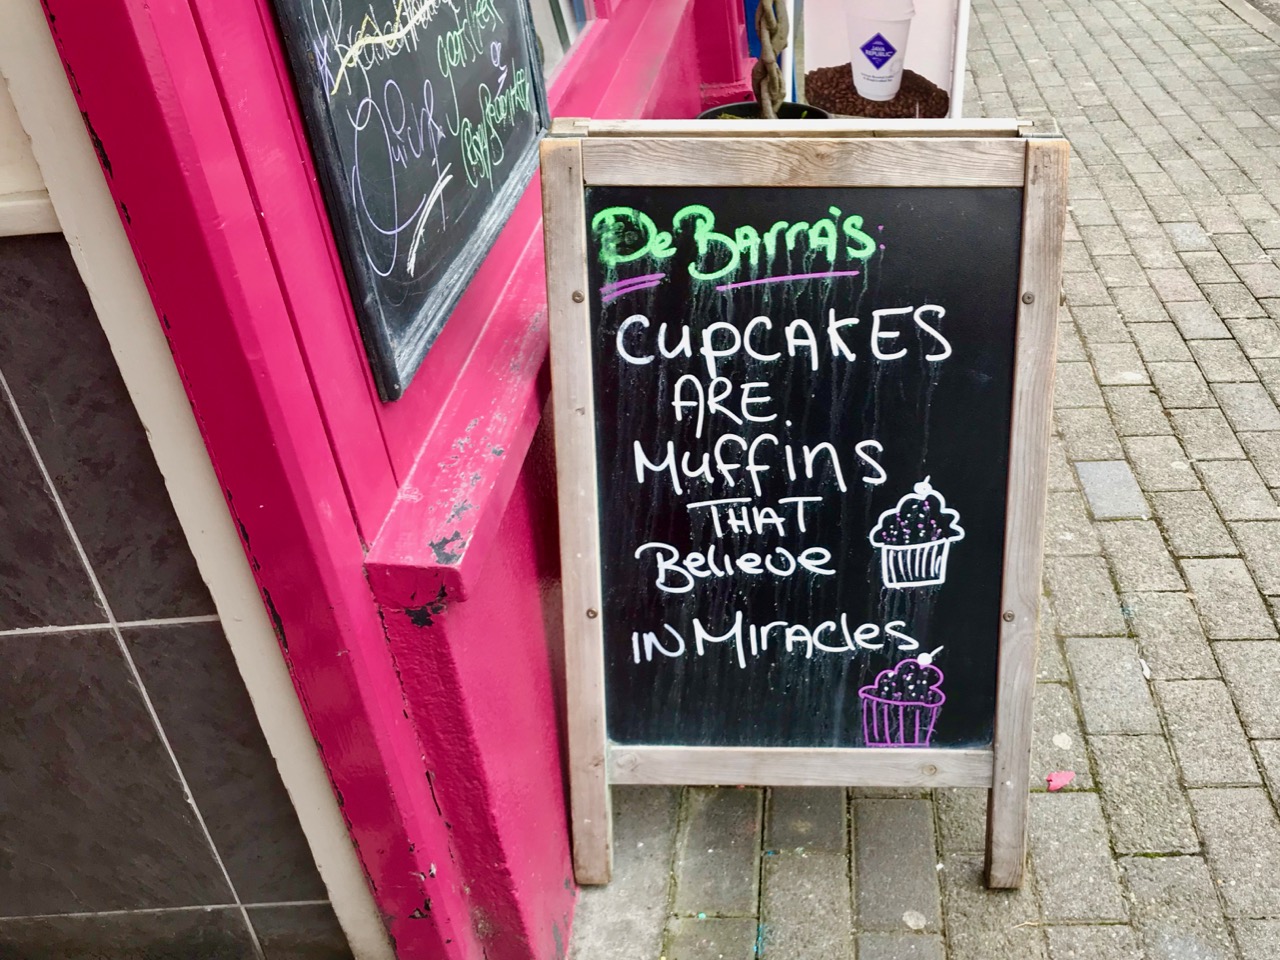 Quiche
goats cheese
JAVA
REPUBLIC
De Barra's
CUPCAKES
ARE
Muffins
THAT
Believe
IN MIRAcles